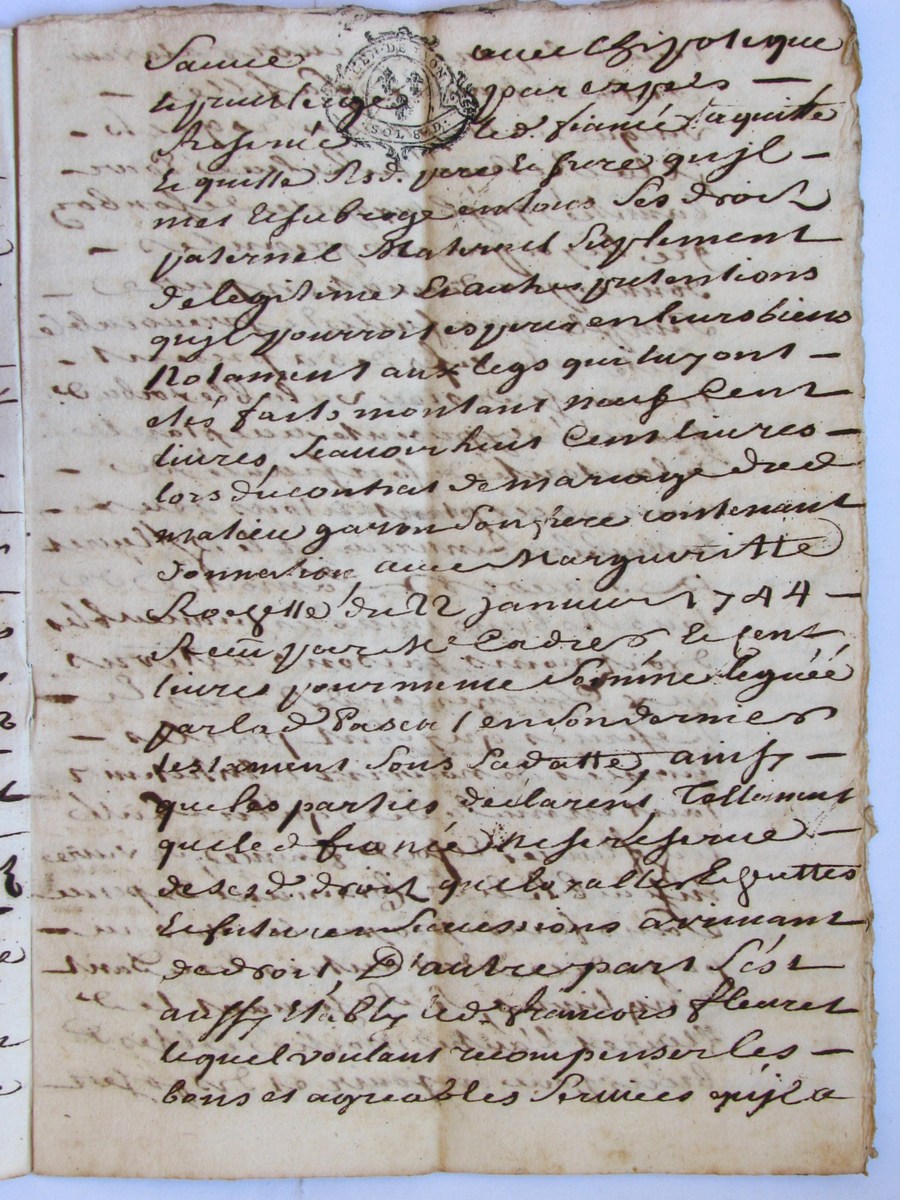 Sauce avec Chipoteque
GEN. DE MON
SOL 8 D.
et privilege par expres —
Reservé led. fiancé aquitte
Et quitte Sesd. pere Et frere quyl —
met Et subroge en tous Ses droit
paternel Maternel Suplement
de legitime Et autres pretentions
quyl pourroit esperer en leurs biens
Notament aux legs qui luy ont —
etés faits montant neuf Cent
livres, Scauoir huit Cent livres —
lors du contrat de mariage dud
matieu garon Son frere contenant
donnation avec Margueritte
Rozette du 22 janvier 1744 —
Receu par Me Cadres Et Cent
livres pour meme Somme leguéé
par lad Pascal en Son dernier
testament Sous Sa datte, ainsy —
que les parties declarent, Tellement
que led fiancé ne se reserve —
de sesd. droit que la
Et future Successions arrivant
de droit, D'autre part S'ést
aussy etably led. francois fleuret
lequel voulant recompenser les —
bons et agreables Services quyl a